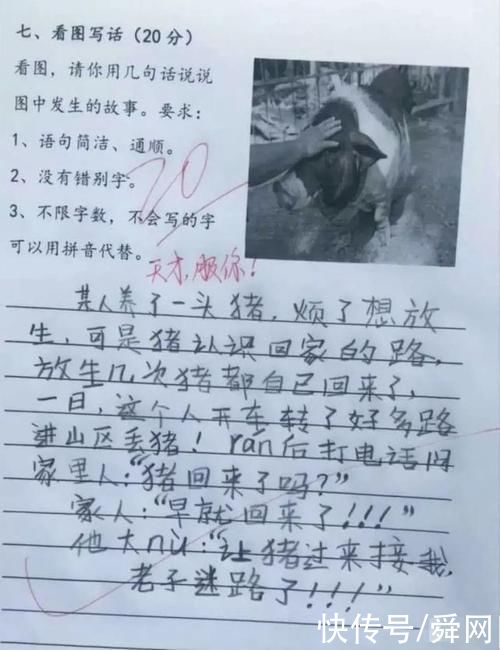 七、看图写话（20分）
看图，请你用几句话说说
图中发生的故事。要求：
1、语句简洁、通顺。
2、没有错别字。
20
3、不限字数，不会写的字
可以用拼音代替。
天才，服你！
某人养了一头猪，烦了想放
生，可是猪认识回家的路，
放生几次猪都自己回来了，
一日，这个人开车转了好多路
进山区丢猪！rán后打电话问
家里人：“猪回来了吗？”
家人：“早就回来了！！！”
他大nù：“让猪过来接我，
老子迷路了！！！”
快传号/舜网